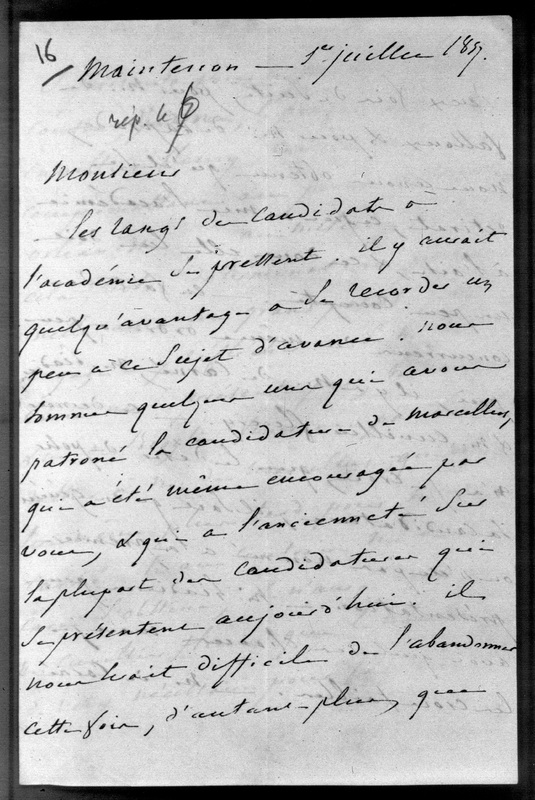 16
Maintenon — 1er juillet 185
rép. le 6
Monsieur
les rangs des candidats a
l'académie se pressent. il y aurait
quelqu'avantage a se recorder un
peu a ce sujet d'avance. nous
sommes quelques uns qui avons
patroné la candidature de marcellus,
qui a été même encouragée par
vous, & qui a l'ancienneté sur
la plupart des candidatures qui
se présentent aujourd'hui. il
nous serait difficile de l'abandonner
cette fois, d'autant plus que